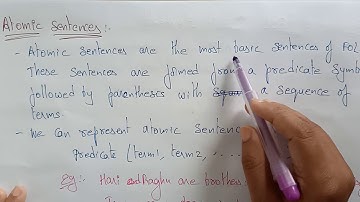 Atomic Sentences:-
- Atomic sentences are the most basic sentences of FOL
These sentences are formed from a predicate symb
followed by parentheses with a sequence of
terms.
- We can represent atomic Sentenc
Predicate (term1, term2, ....
Eg:- Hari and Raghu are brothers